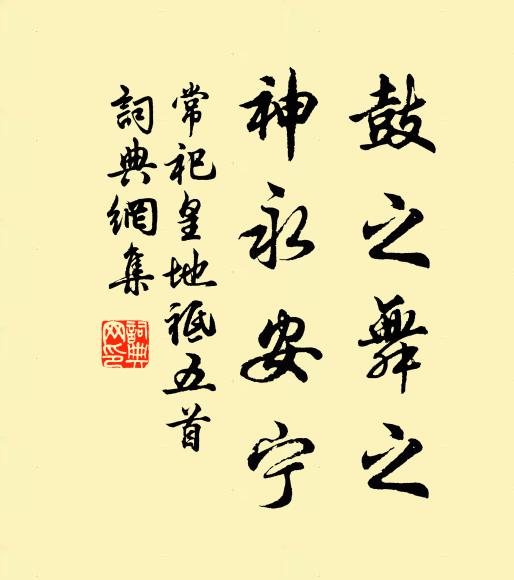 鼓之舞之
神永安宁
常祀皇地祇五首
詞典網集
詞典
网印